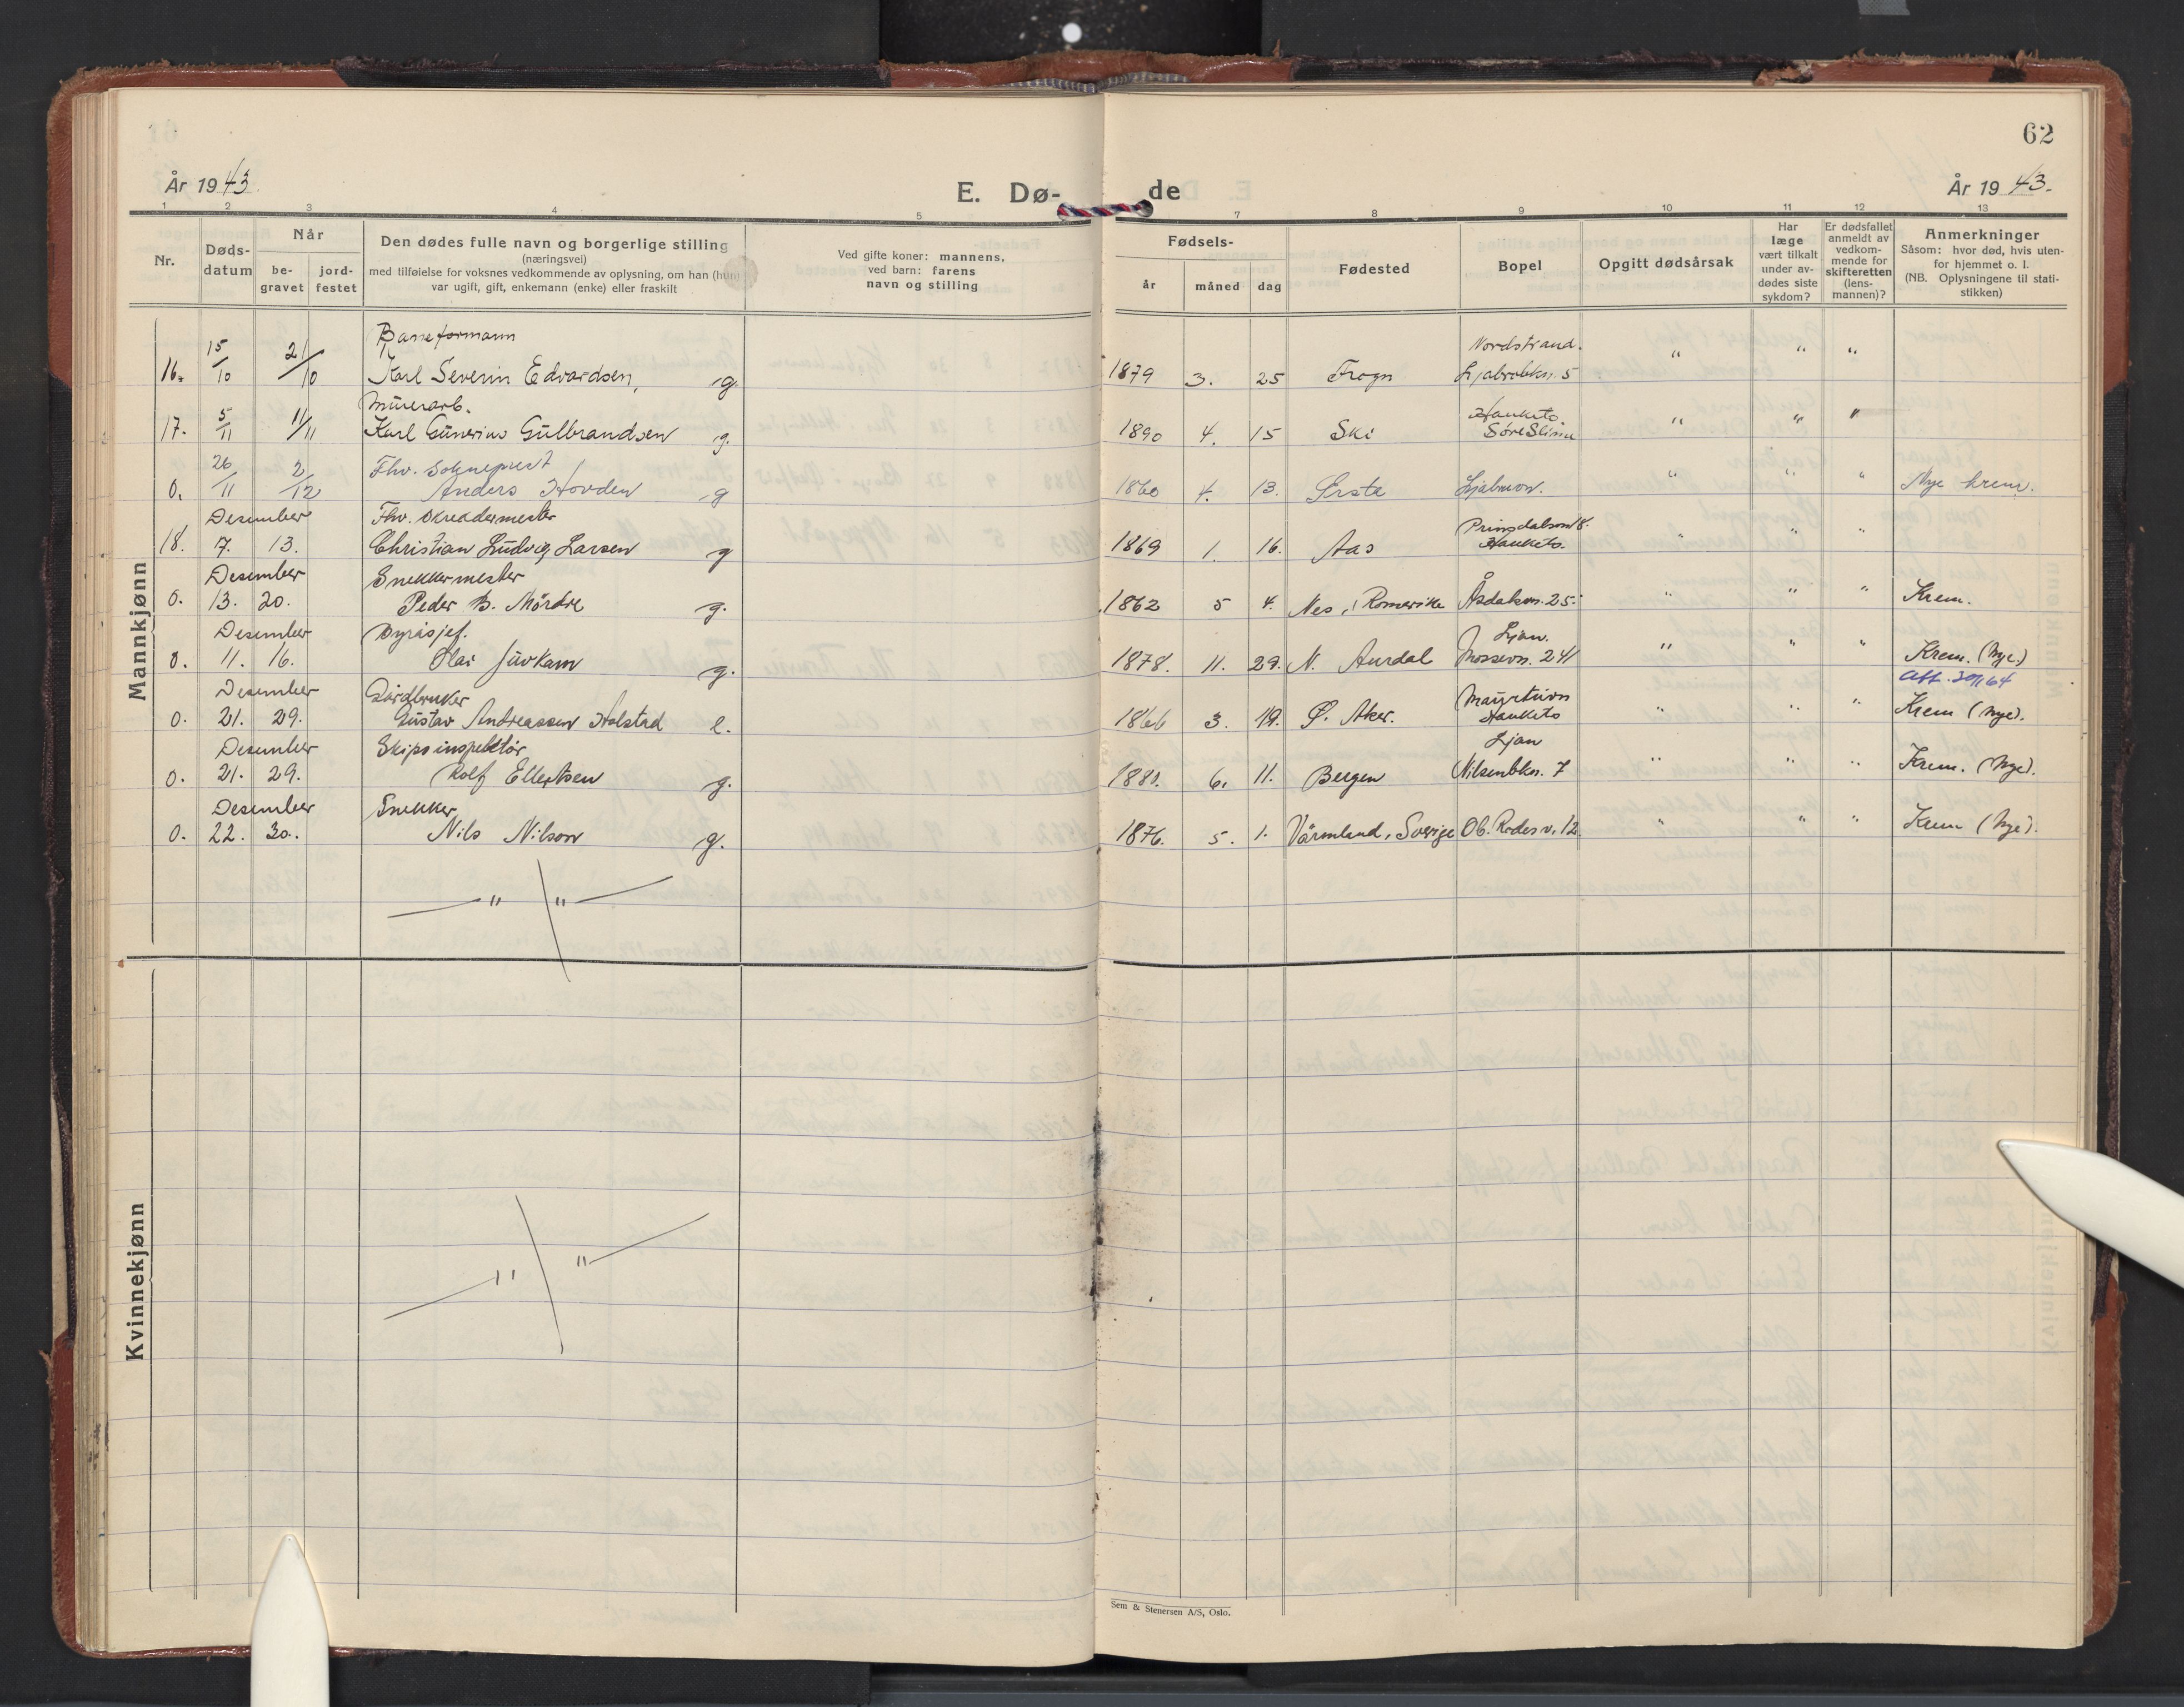 62
År 1943.
E. Dø-
de
År 1943.
1 2 3 4 5 7 8 9 10 11 12 13
Nr.
Døds-
datum
Når
be-
gravet
jord-
festet
Den dødes fulle navn og borgerlige stilling
(næringsvei)
med tilføielse for voksnes vedkommende av oplysning, om han (hun)
var ugift, gift, enkemann (enke) eller fraskilt
Ved gifte koner: mannens,
ved barn: farens
navn og stilling
Fødsels-
år
måned
dag
Fødested
Bopel
Opgitt dødsårsak
Har
læge
vært tilkalt
under av-
dødes siste
sykdom?
Er dødsfallet
anmeldt av
vedkom-
mende for
skifteretten
(lens-
mannen)?
Anmerkninger
Såsom: hvor død, hvis uten-
for hjemmet o. l.
(NB. Oplysningene til stati-
stikken)
Mannkjønn
Baseformann Nordstrand.
16. 15/10 21/10 Karl Severin Edvardsen, g. 1879 3. 25 Frogn 5 " " "
Murerarb. Hauketo
17. 5/11 11/11 Karl Gunerius Gulbrandsen g. 1890 4. 15 Ski Søre " " "
Fhv. Sokneprest
0. 26/11 2/12 Anders Hovden g 1860 4. 13. Ørsta " " " Nye krem.
Desember Fhv. skreddermester Prinsdalsvn 8.
18. 7. 13. Christian Ludvig Larsen g 1869 1. 16. Aas Hauketo. " " "
Desember Snekkermester
0. 13. 20. Peder B. Mördre g. 1862 5 4. Nes, Romerike Åsdalsvn. 25. " " " Krem.
Desember Byråsjef. Ljan.
0. 11. 16. Olai Juvkam g. 1878. 11. 29. N. Aurdal Mossevn. 241 " " " Krem. (Nye)
Desember Gårdbruker
0. 21. 29. Gustav Andreassen Holstad e. 1866 3. 19. Ø. Aker. Hauketo " " " Krem (Nye).
Desember Skipsinspektör Ljan
0. 21. 29. Rolf Ellertsen g. 1881. 6. 11. Bergen Nilsenbkn. 7 " " " Krem. (Nye).
Desember Snekker
0. 22. 30. Nils Nilson g. 1876. 5. 1. Värmland, Sverige Ob. Rodes v. 12 " " " Krem (Nye).
" "
Kvinnekjønn
" "
Sem & Stenersen A/S, Oslo.